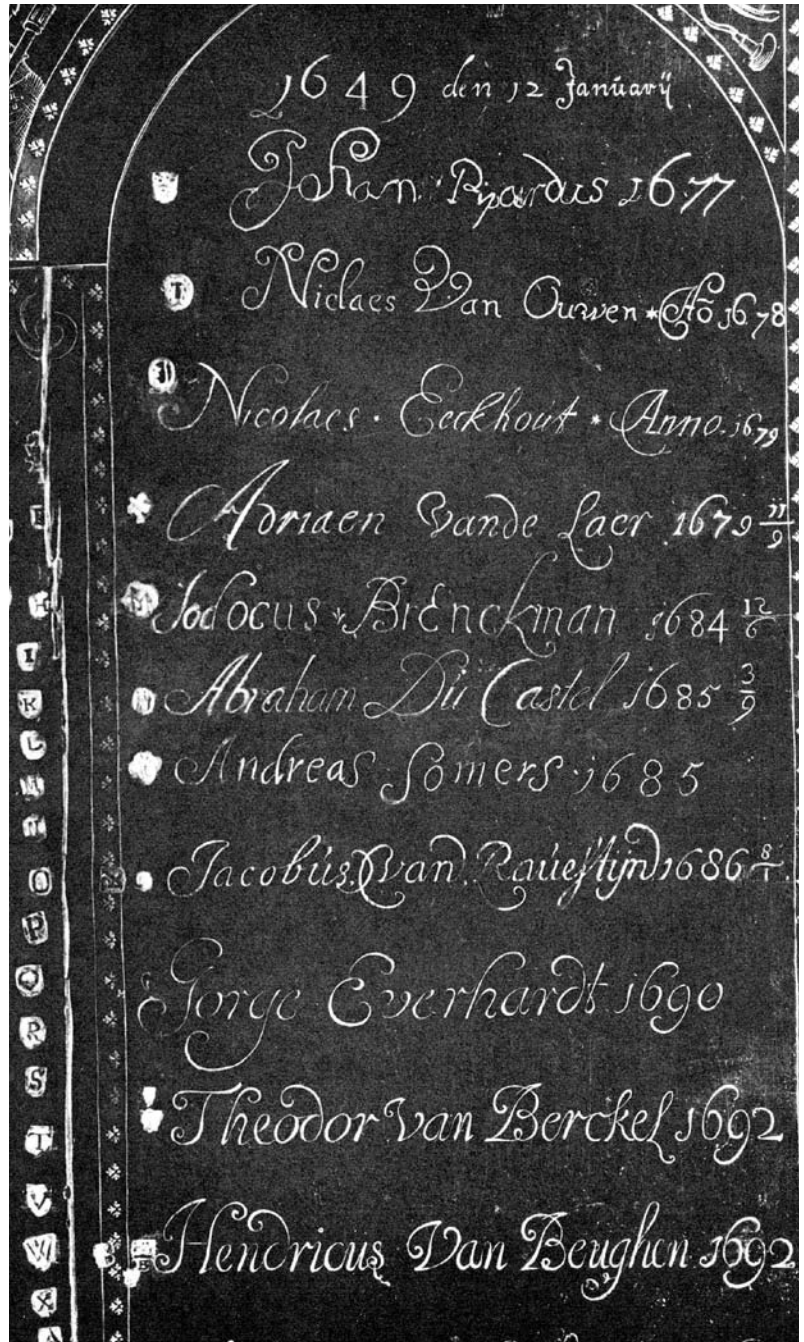 1649 den 12 Januarij
Johan Pijpardus 1677
T Niclaes Van Ouwen * Aõ 1678
Nicolaes · Eeckhout * Anno · 1679
Adriaen vande Laer 1679 11/9
M Jodocus Brenckman 1684 12/6
N Abraham Du Castel 1685 3/9
Andreas Somers · 1685
Jacobús van Ravestijn 1686 8/1
Gorge Everhardt 1690
Theodor van Berckel 1692
Hendricus Van Beughen 1692
H
I
K
L
M
N
O
P
Q
R
S
T
V
W
X